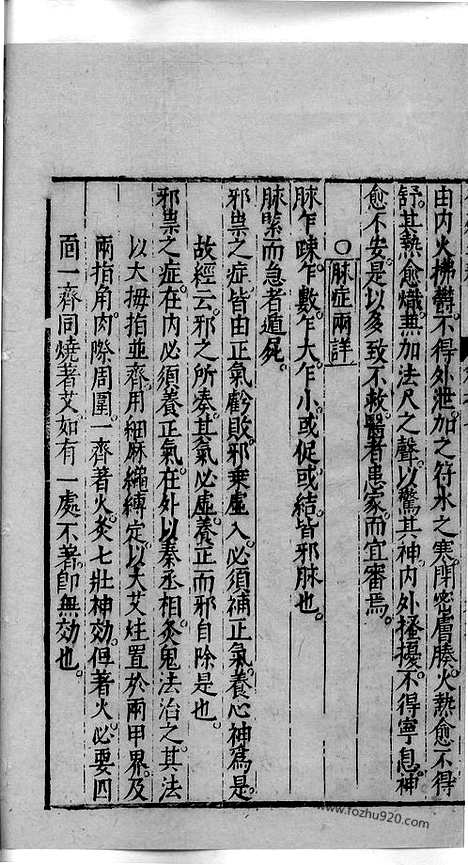 由內火拂欝。不得外泄。加之符水之寒。閉密膚腠。火熱愈不得
舒。其熱愈熾。兼加法尺之聲。以驚其神。內外搔擾。不得寧息。神
愈不安。是以多致不救。醫者患家。而宜審焉。
○脉症兩詳
脉乍踈乍數。乍大乍小。或促或結。皆邪脉也。
脉緊而急者遁屍。
邪祟之症。皆由正氣虧敗。邪乘虛入。必須補正氣。養心神爲是。
故經云。邪之所凑。其氣必虛。養正而邪自除是也。
邪祟之症。在內必須養正氣。在外以秦丞相灸鬼法治之。其法
以大拇指並齊。用細麻繩縛定。以大艾炷置於兩甲界。及
兩指角肉際周圍。一齊著火。灸七壯神効。但著火必要四
面一齊同燒著艾。如有一處不著。卽無効也。
www.fozhu920.com